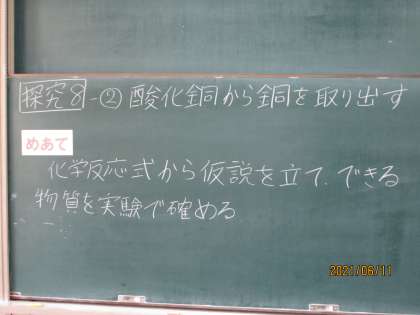 探究8-② 酸化銅から銅を取り出す
めあて
化学反応式から仮説を立て、できる
物質を実験で確める
2021/06/11